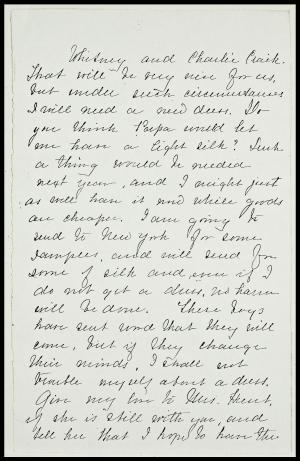 Whitney and Charlie Craik.
That will be very nice for us,
but under such circumstances
I will need a new dress. Do
you think Papa would let
me have a light silk? Such
a thing would be needed
next year, and I might just
as well have it now while goods
are cheaper. I am going to
send to New York for some
samples, and will send for
some of silk and even if I
do not get a dress, no harm
will be done. These boys
have sent word that they will
come, but if they change
their minds, I shall not
trouble myself about a dress.
Give my love to Mrs. Trent,
if she is still with you, and
tell her that I hope to have the